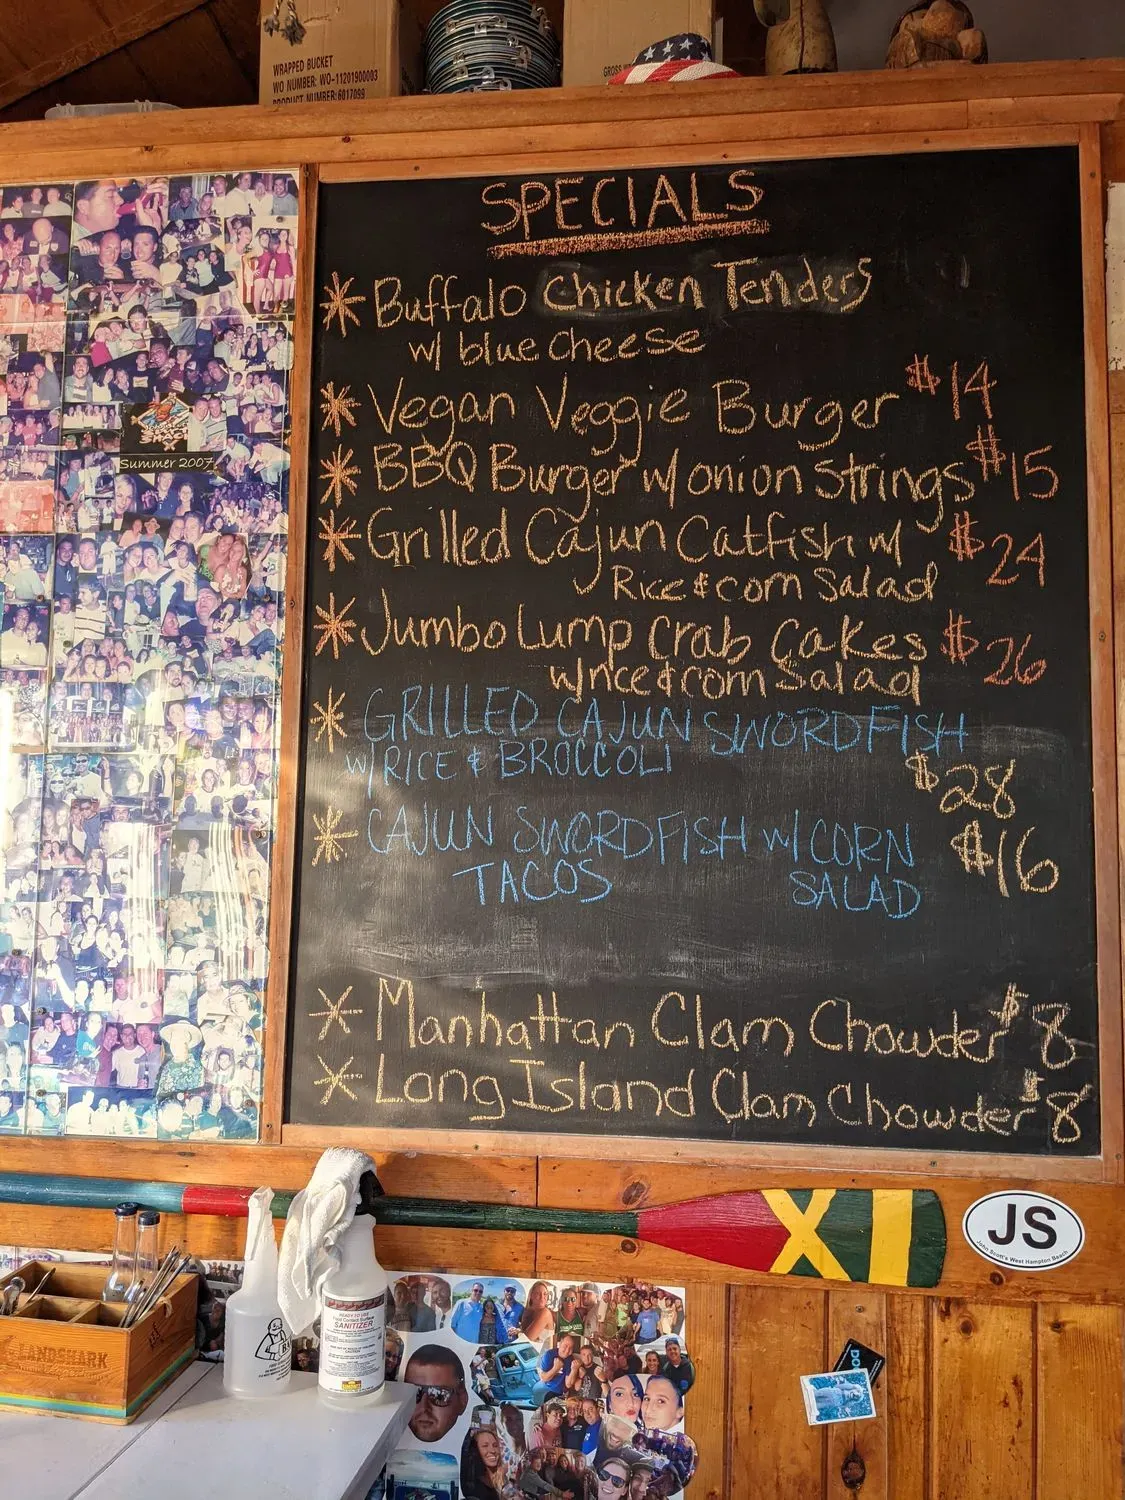 WRAPPED BUCKET
WO NUMBER: WO-11201900003
PRODUCT NUMBER: 6017099
GROSS
SPECIALS
* Buffalo Chicken Tenders
w/ blue cheese
* Vegan Veggie Burger $14
* BBQ Burger w/ onion strings $15
* Grilled Cajun Catfish w/ $24
Rice & corn Salad
* Jumbo Lump Crab Cakes $26
w/ rice & corn Salad
* GRILLED CAJUN SWORDFISH
w/ RICE & BROCCOLI
$28
* CAJUN SWORDFISH w/ CORN $16
TACOS SALAD
* Manhattan Clam Chowder $8
* Long Island Clam Chowder $8
Summer 2007
XI
JS
John Scott's West Hampton Beach
LANDSHARK
SANITIZER